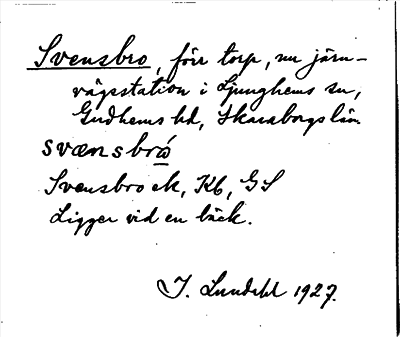 Svensbro, förr torp, nu järn-
vägsstation i Ljunghems sn,
Gudhems hd, Skaraborgs län.
svænsbrå
Svensbro ek, Kb, GS
Ligger vid en bäck.
J. Lundahl 1927.